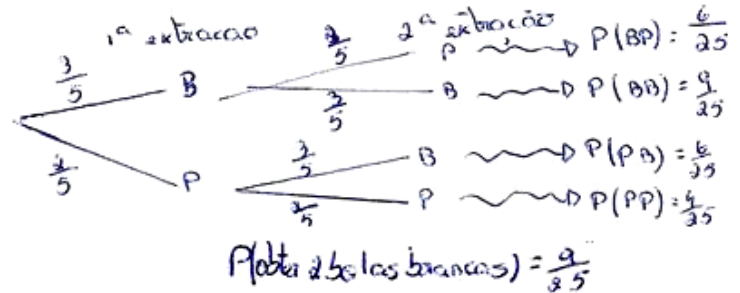 1ª extracao 2ª extracão
3/5 B 2/5 P P(BP) = 6/25
3/5 B P(BB) = 9/25
2/5 P 3/5 B P(PB) = 6/25
2/5 P P(PP) = 4/25
P(obter 2 bolas brancas) = 9/25